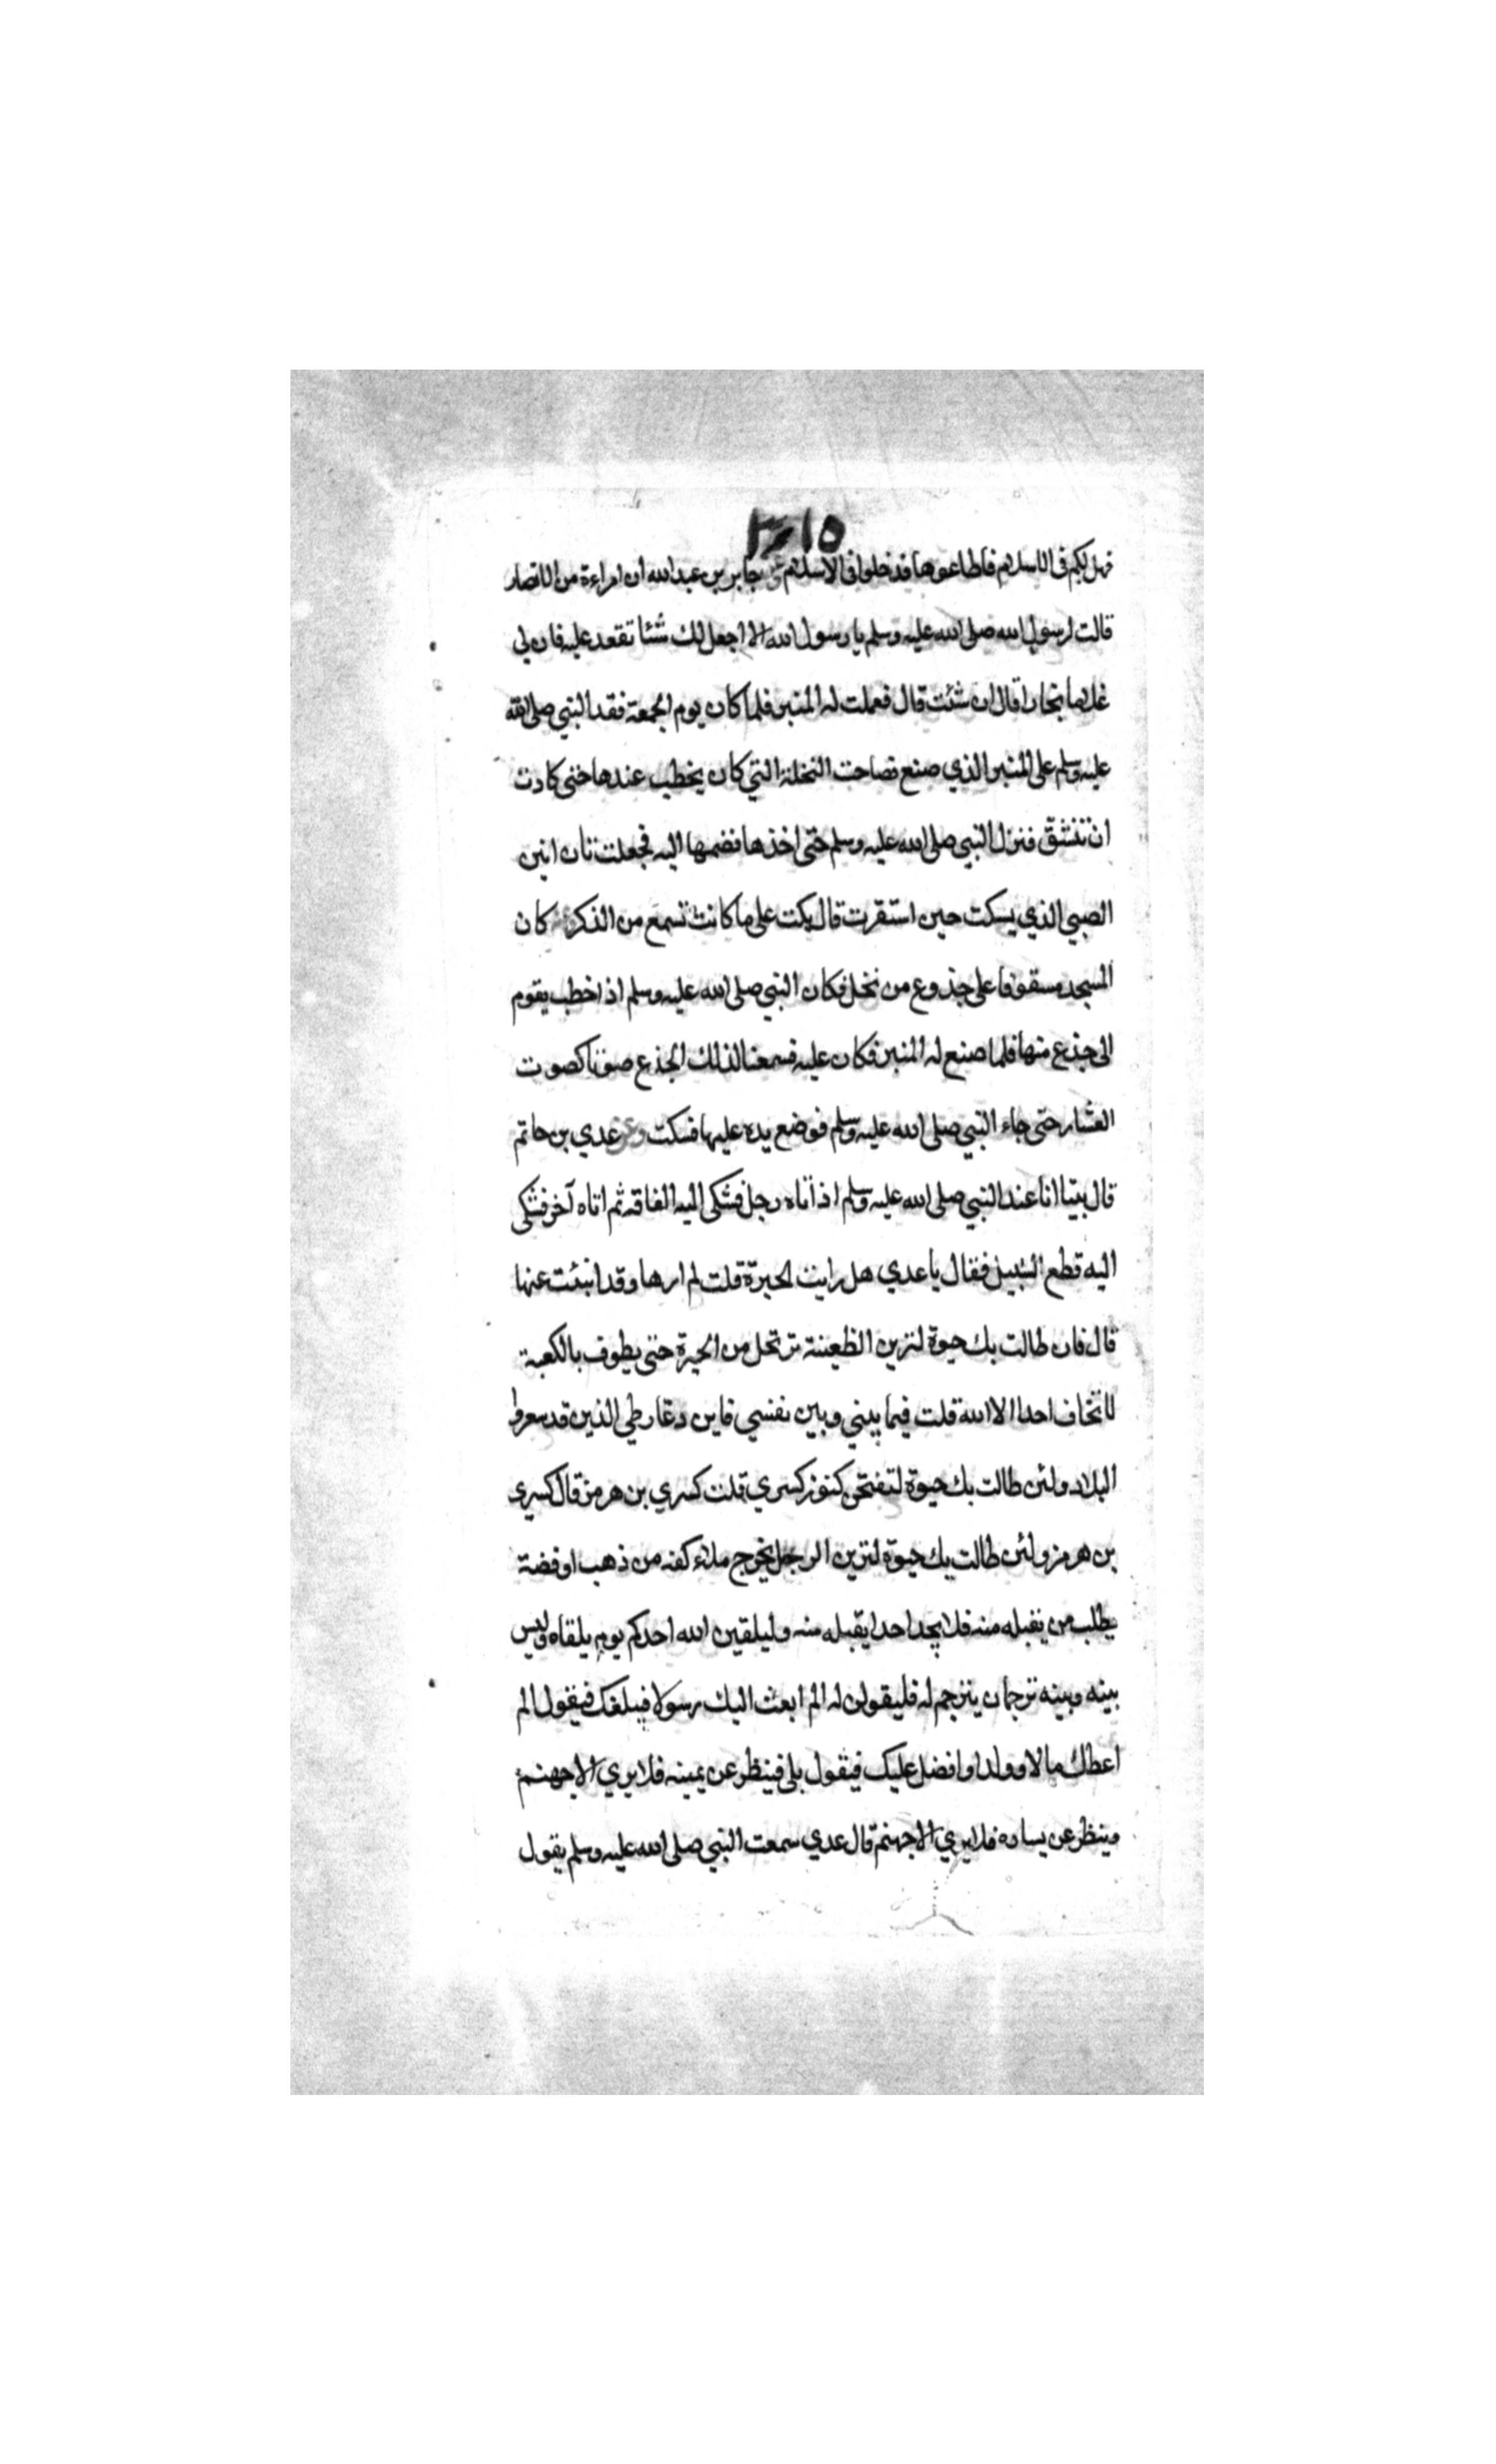 فهل لكم فى الاسلام فاطاعوها فدخلوا فى الاسلام جابر بن عبدالله ان امراءة من الانصار
قالت لرسول الله صلى الله عليه وسلم يا رسول الله الا اجعل لك شئا تقعد عليه فان لي
غلاما نجارا قال ان شئت قال فعملت له المنبر فلما كان يوم الجمعة فقد النبي صلى الله
عليه وسلم على المنبر الذي صنع فصاحت النخلة التي كان يخطب عندها حتى كادت
ان تنشق فنزل النبي صلى الله عليه وسلم حتى اخذها فضمها اليه فجعلت تان انين
الصبي الذي يسكت حين استقرت قال بكت على ما كانت تسمع من الذكر كان
المسجد مسقوفا على جذوع من نخل فكان النبي صلى الله عليه وسلم اذا خطب يقوم
الى جذع منها فلما صنع له المنبر فكان عليه فسمعنا لذلك الجذع صوتا كصوت
العشار حتى جاء النبي صلى الله عليه وسلم فوضع يده عليها فسكت وعن عدي بن حاتم
قال بينا انا عند النبي صلى الله عليه وسلم اذ اتاه رجل فشكى اليه الفاقة ثم اتاه آخر فشكى
اليه قطع السبيل فقال يا عدي هل رايت الحيرة قلت لم ارها وقد انبئت عنها
قال فان طالت بك حيوة لترين الظعينة ترتحل من الحيرة حتى يطوف بالكعبة
لا تخاف احدا الا الله قلت فيما بيني وبين نفسي فاين دعار طي الذين قد سعروا
البلاد ولئن طالت بك حيوة لتفتحن كنوز كسري قلت كسري بن هرمز قال كسري
بن هرمز ولئن طالت بك حيوة لترين الرجل يخرج ملاء كفه من ذهب او فضة
يطلب من يقبله منه فلا يجد احدا يقبله منه وليلقين الله احدكم يوم يلقاه وليس
بينه وبينه ترجمان يترجم له فليقولن له الم ابعث اليك رسولا فيبلغك فيقول الم
اعطك مالا وولدا وافضل عليك فيقول بلى فينظر عن يمينه فلا يري الا جهنم
وينظر عن يساره فلا يري الا جهنم قال عدي سمعت النبي صلى الله عليه وسلم يقول